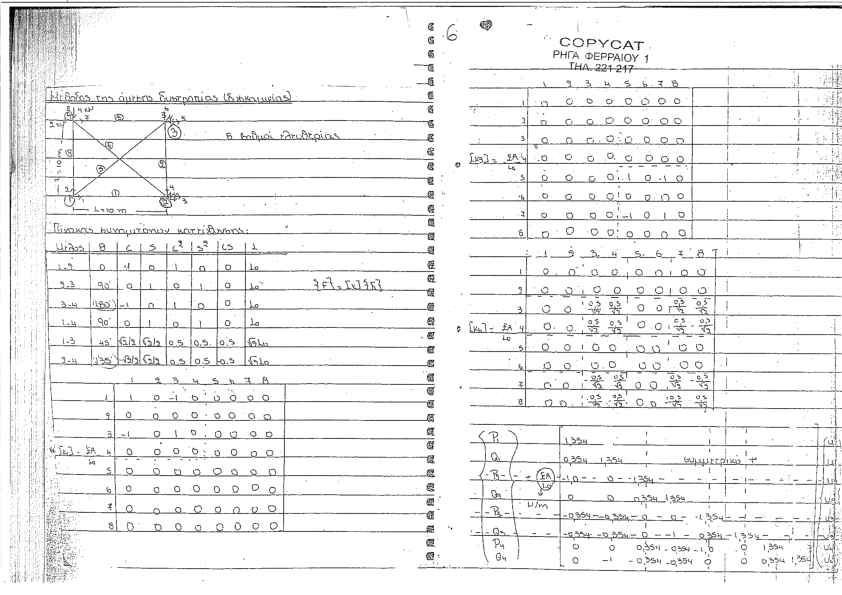 Μέθοδος της άμεσης δυστροπίας (δυσκαμψίας)
4 kN
8 βαθμοί ελευθερίας
L=10 m
Πίνακας συνημιτόνων κατεύθυνσης:
Μέλος θ C S C² S² CS L
1-2 0 1 0 1 0 0 Lo
2-3 90° 0 1 0 1 0 Lo
{F} = [K]{δ}
3-4 180° -1 0 1 0 0 Lo
1-4 90° 0 1 0 1 0 Lo
1-3 45° √2/2 √2/2 0.5 0.5 0.5 √2Lo
2-4 135° -√2/2 √2/2 0.5 0.5 0.5 √2Lo
1 2 3 4 5 6 7 8
1 1 0 -1 0 0 0 0 0
2 0 0 0 0 0 0 0 0
3 -1 0 1 0 0 0 0 0
[K1] = EA/Lo 4 0 0 0 0 0 0 0 0
5 0 0 0 0 0 0 0 0
6 0 0 0 0 0 0 0 0
7 0 0 0 0 0 0 0 0
8 0 0 0 0 0 0 0 0
6
COPYCAT
ΡΗΓΑ ΦΕΡΡΑΙΟΥ 1
ΤΗΛ. 221 217
1 2 3 4 5 6 7 8
1 0 0 0 0 0 0 0 0
2 0 0 0 0 0 0 0 0
3 0 0 0 0 0 0 0 0
[K3] = EA/Lo 4 0 0 0 0 0 0 0 0
5 0 0 0 0 1 0 -1 0
6 0 0 0 0 0 0 0 0
7 0 0 0 0 -1 0 1 0
8 0 0 0 0 0 0 0 0
1 2 3 4 5 6 7 8
1 0 0 0 0 0 0 0 0
2 0 0 0 0 0 0 0 0
3 0 0 0,5/√2 -0,5/√2 0 0 -0,5/√2 0,5/√2
[K4] = EA/Lo 4 0 0 -0,5/√2 0,5/√2 0 0 0,5/√2 -0,5/√2
5 0 0 0 0 0 0 0 0
6 0 0 0 0 0 0 0 0
7 0 0 -0,5/√2 0,5/√2 0 0 0,5/√2 -0,5/√2
8 0 0 0,5/√2 -0,5/√2 0 0 -0,5/√2 0,5/√2
P1 1,354
Q1 0,354 1,354 συμμετρικό
P2 EA/Lo -1,0 0 1,354
Q2 0 0 0,354 1,354
P3 N/m -0,354 -0,354 0 0 1,354
Q3 -0,354 -0,354 0 -1 0,354 1,354
P4 0 0 0,354 -0,354 -1,0 0 1,354
Q4 0 -1 -0,354 -0,354 0 0 0,354 1,354